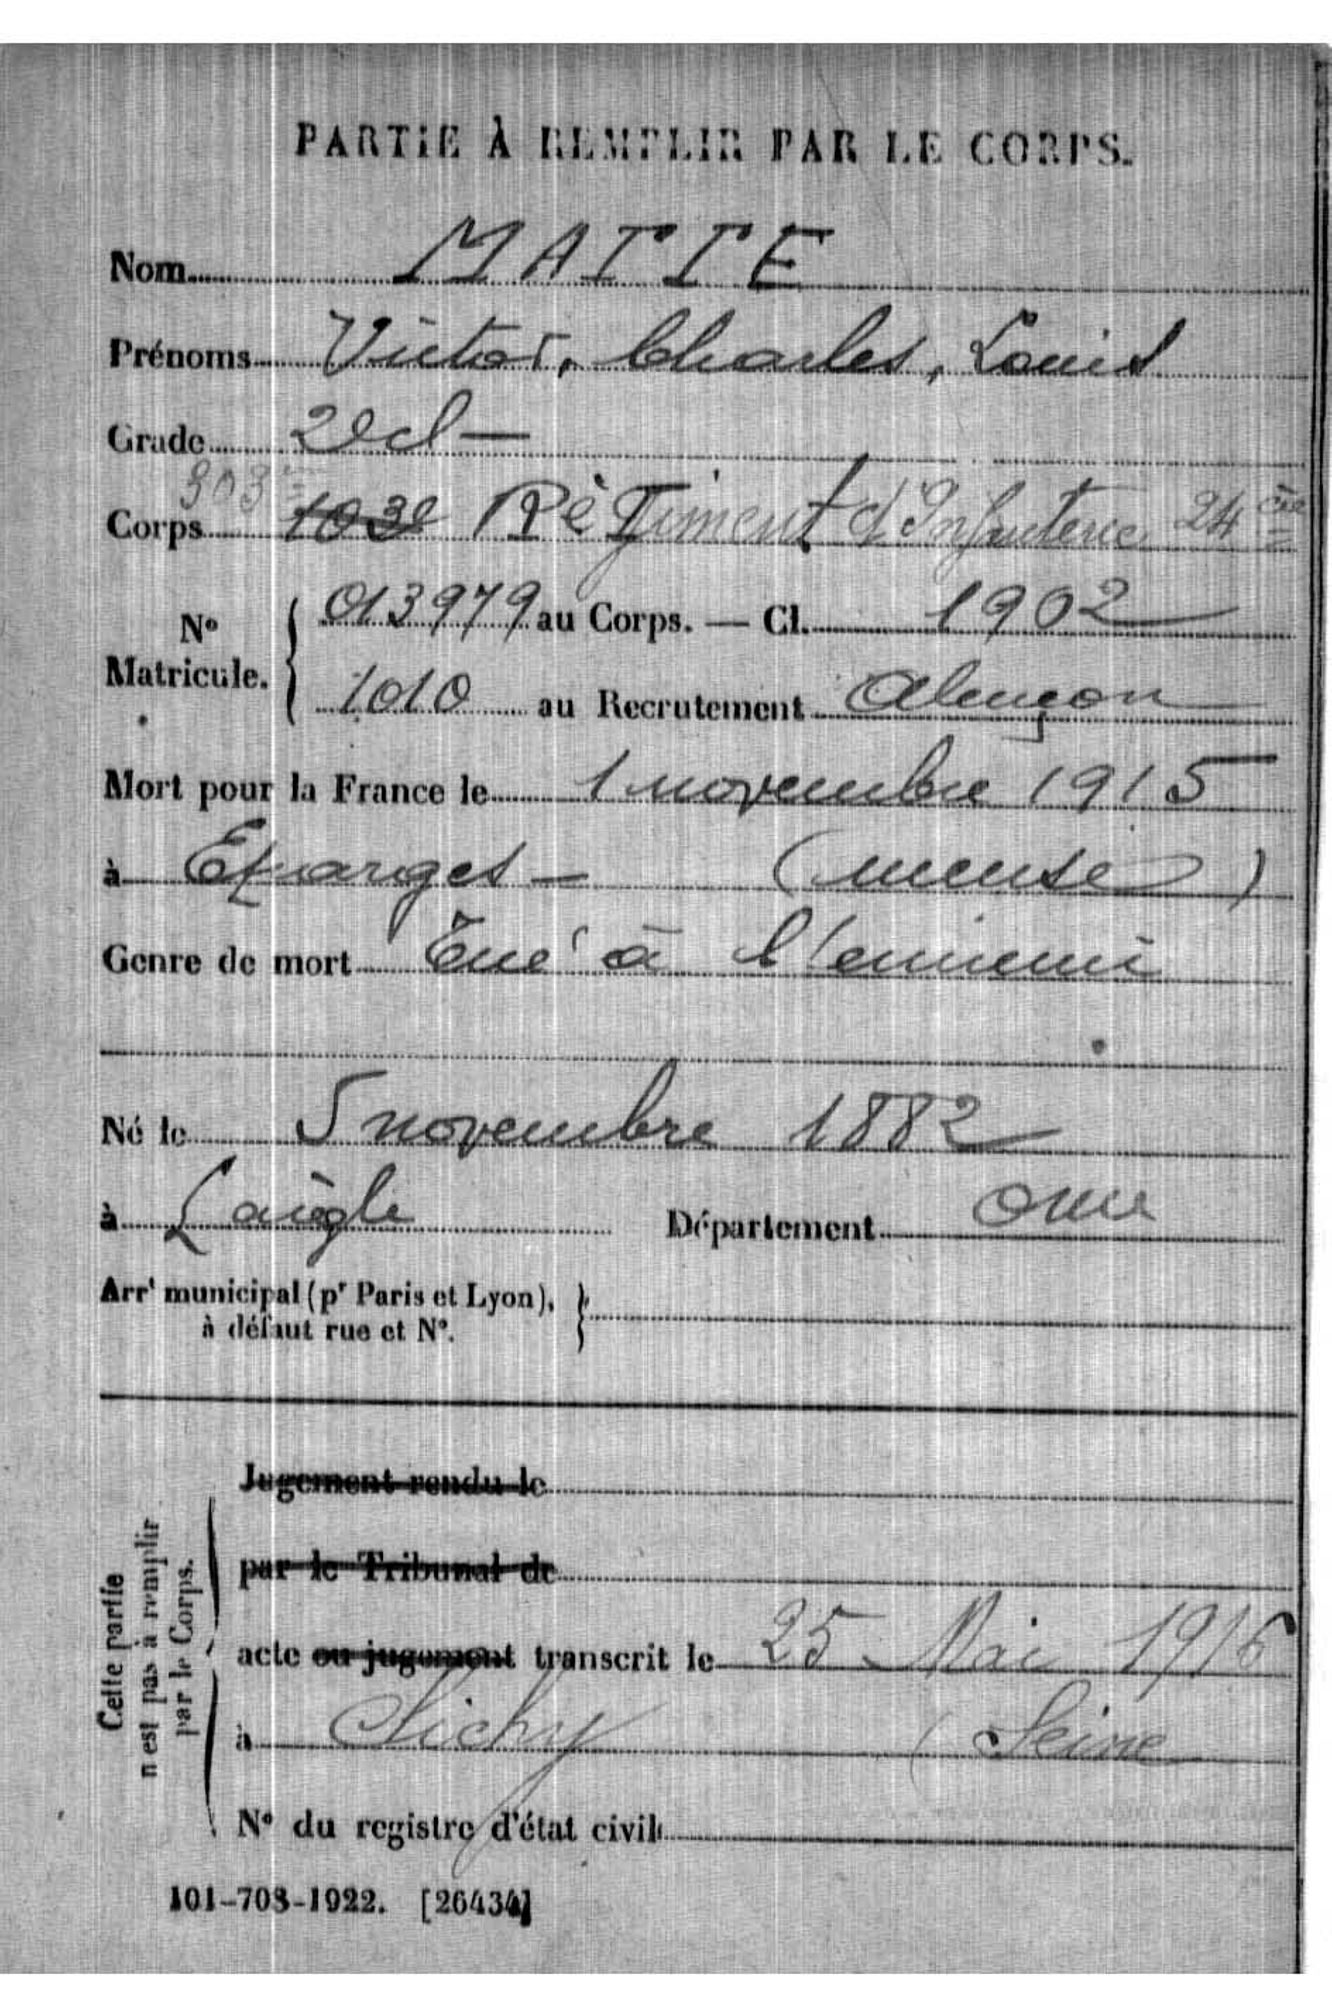 PARTIE À REMPLIR PAR LE CORPS.
Nom MATTE
Prénoms Victor, Charles, Louis
Grade 2e cl —
303e
Corps 103e Régiment d'Infanterie 24 cie
No Matricule. 013979 au Corps. — Cl. 1902
1010 au Recrutement Alençon
Mort pour la France le 1 novembre 1915
à Eparges — (meuse)
Genre de mort Tué à l'ennemi
Né le 5 novembre 1882
à Laigle Département Orne
Arrt municipal (pr Paris et Lyon), à défaut rue et No.
Cette partie n'est pas à remplir par le Corps.
Jugement rendu le
par le Tribunal de
acte ou jugement transcrit le 25 Mai 1916
à Clichy (Seine
No du registre d'état civil
101-708-1922. [26434]